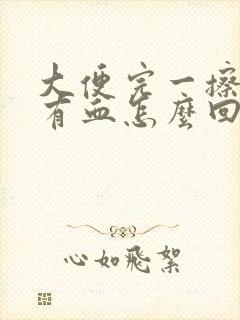 大便完一擦
有血怎麼回
心如飛絮